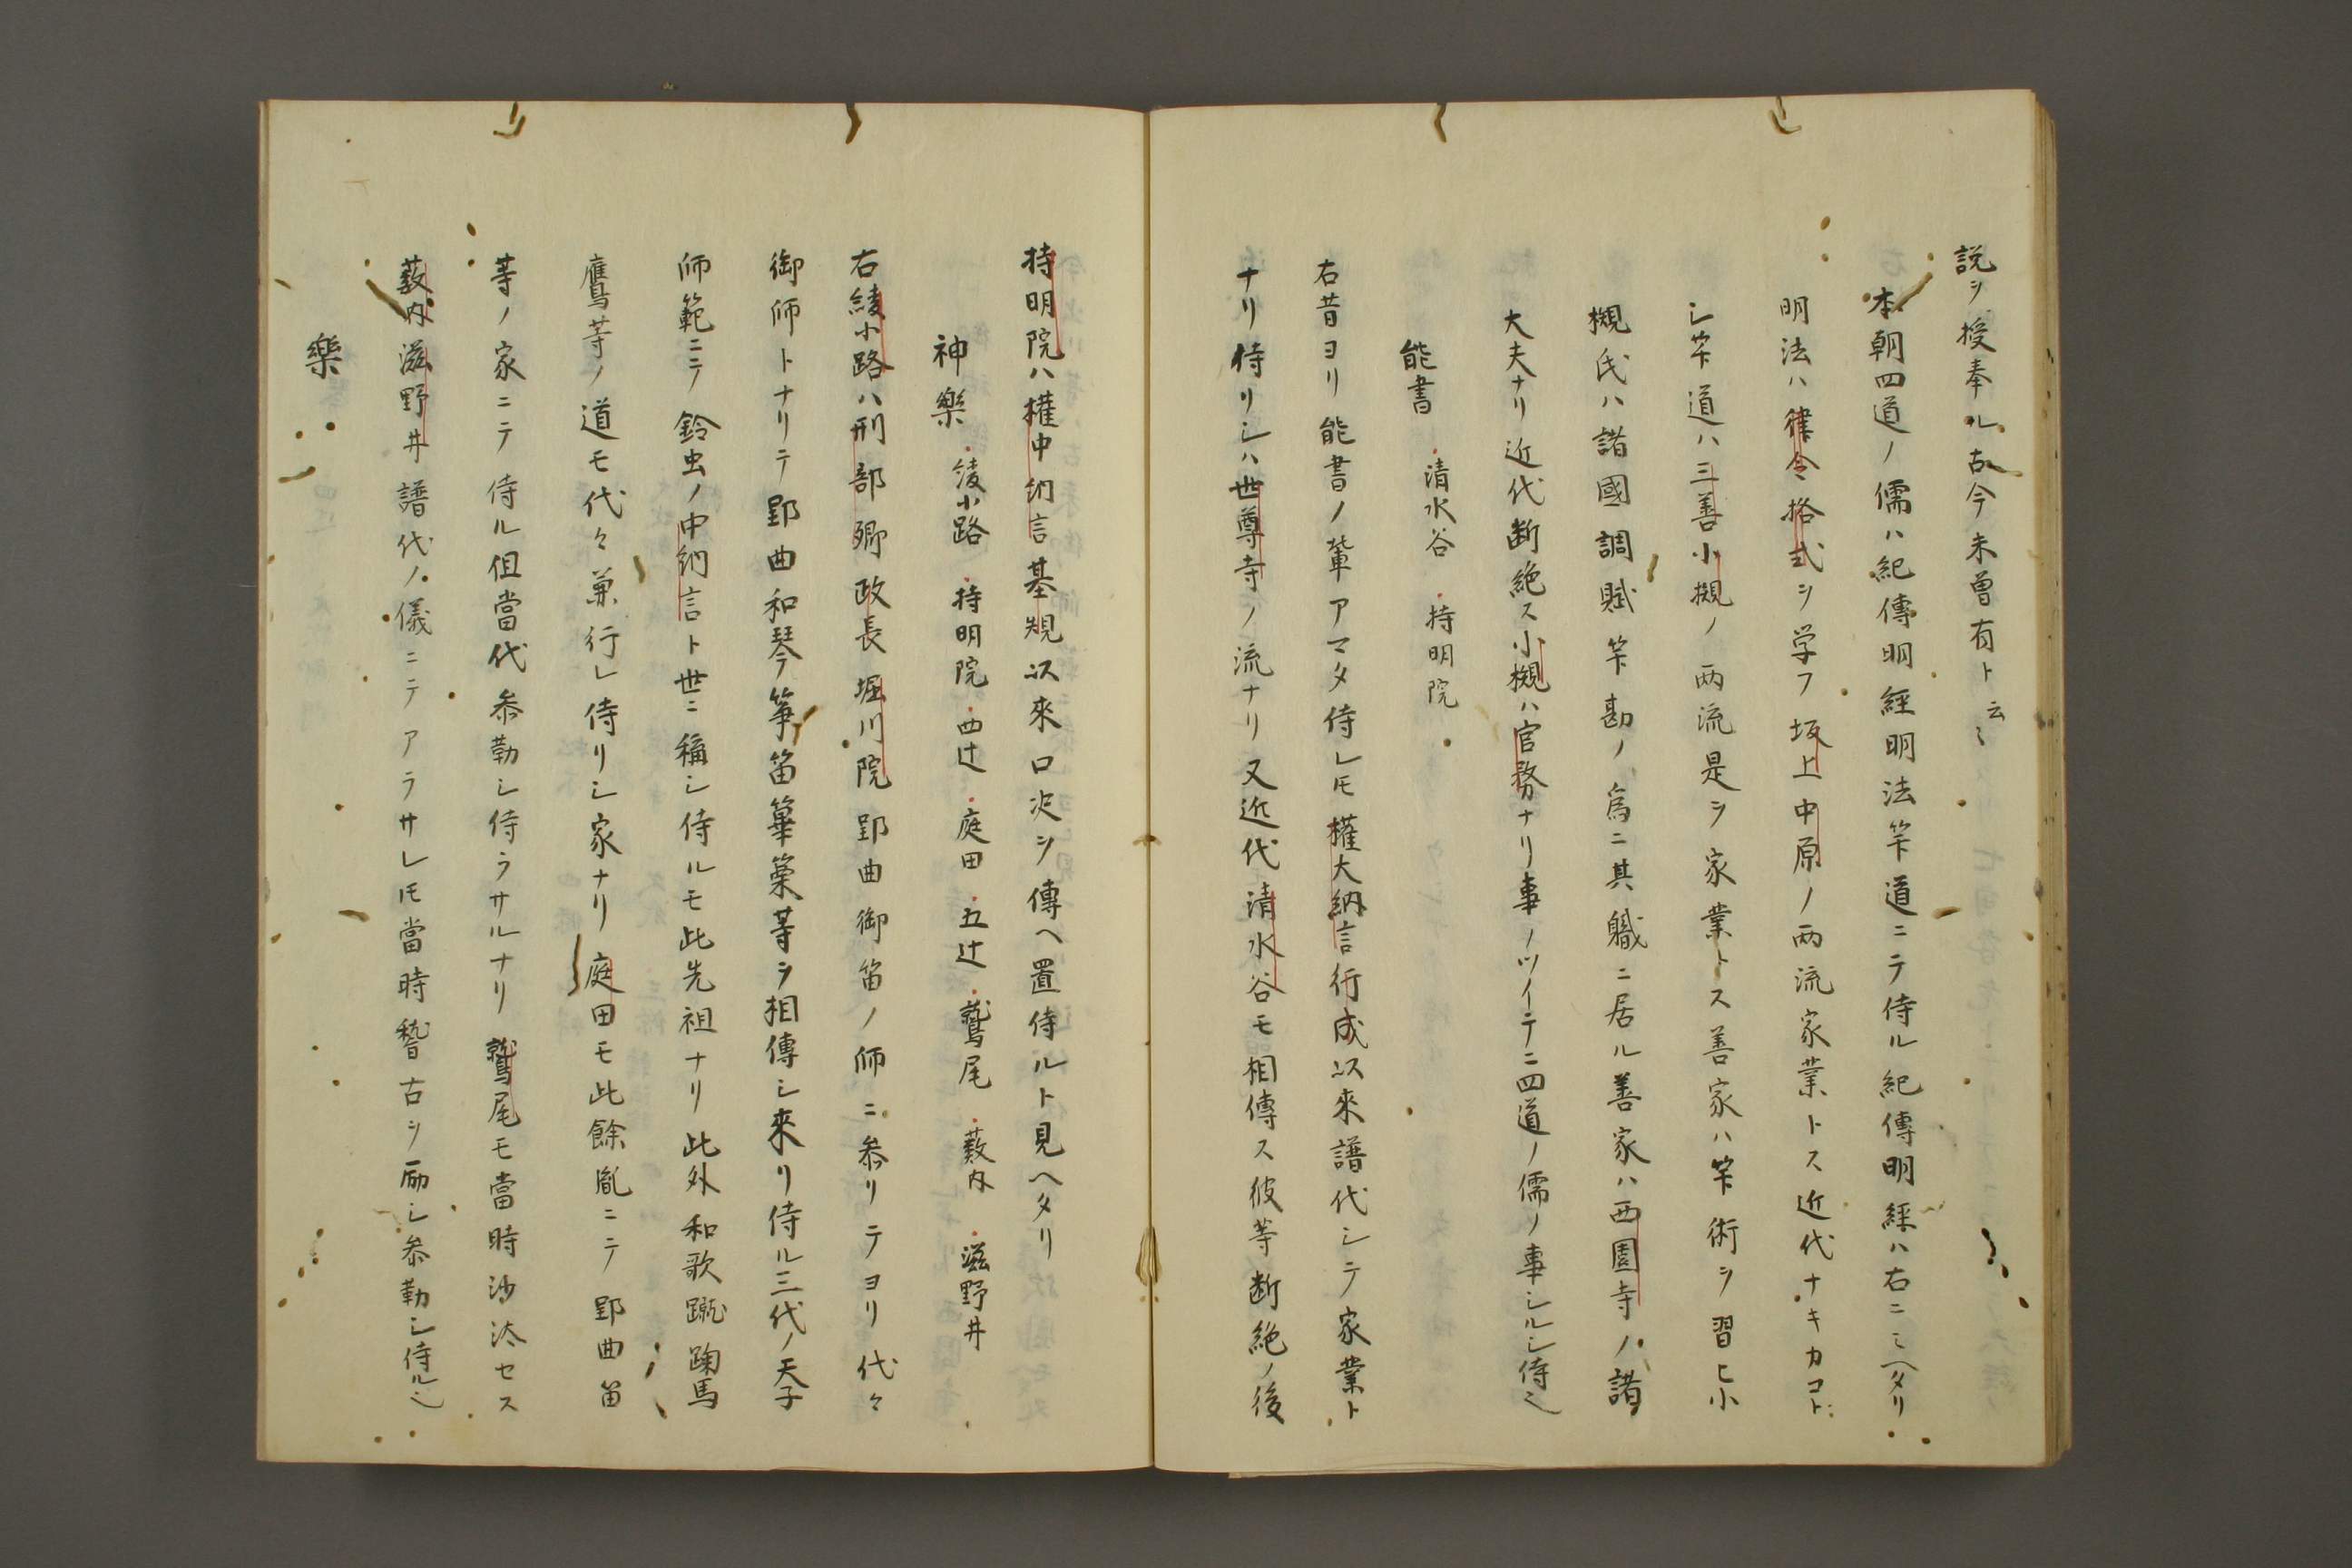 説ヲ授奉ル古今未曽有ト云〻
本朝四道ノ儒ハ紀傳明經明法竿道ニテ侍ル紀傳明經ハ右ニミヘタリ
明法ハ律令格式ヲ学フ坂上中原ノ両流家業トス近代ナキカコトシ
竿道ハ三善小槻ノ両流是ヲ家業トス善家ハ竿術ヲ習ヒ小
槻氏ハ諸國調賦竿勘ノ為ニ其職ニ居ル善家ハ西園寺ノ諸
大夫ナリ近代断絶ス小槻ハ官務ナリ事ノツイテニ四道ノ儒ノ事シルシ侍ㇸ
能書 清水谷 持明院
右昔ヨリ能書ノ輩アマタ侍レ𪜈權大納言行成以來譜代シテ家業ト
ナリ侍リシハ世尊寺ノ流ナリ又近代清水谷モ相傳ス彼等断絶ノ後
持明院ハ權中納言基規以來口决ヲ傳ヘ置侍ルト見ヘタリ
神樂 綾小路 持明院 四辻 庭田 五辻 鷲尾 藪内 滋野井
右綾小路ハ刑部卿政長堀川院郢曲御笛ノ師ニ参リテヨリ代々
御師トナリテ郢曲和琴箏笛篳篥等ヲ相傳シ來リ侍ル三代ノ天子
師範ニテ鈴虫ノ中納言ト世ニ稱シ侍ルモ此先祖ナリ此外和歌蹴鞠馬
鷹等ノ道モ代々兼行レ侍リシ家ナリ庭田モ此餘胤ニテ郢曲笛
等ノ家ニテ侍ル但當代参勤シ侍ラサルナリ鷲尾モ當時沙汰セス
藪内滋野井譜代ノ儀ニテアラサレ𪜈當時稽古ヲ励シ参勤シ侍ル也
樂